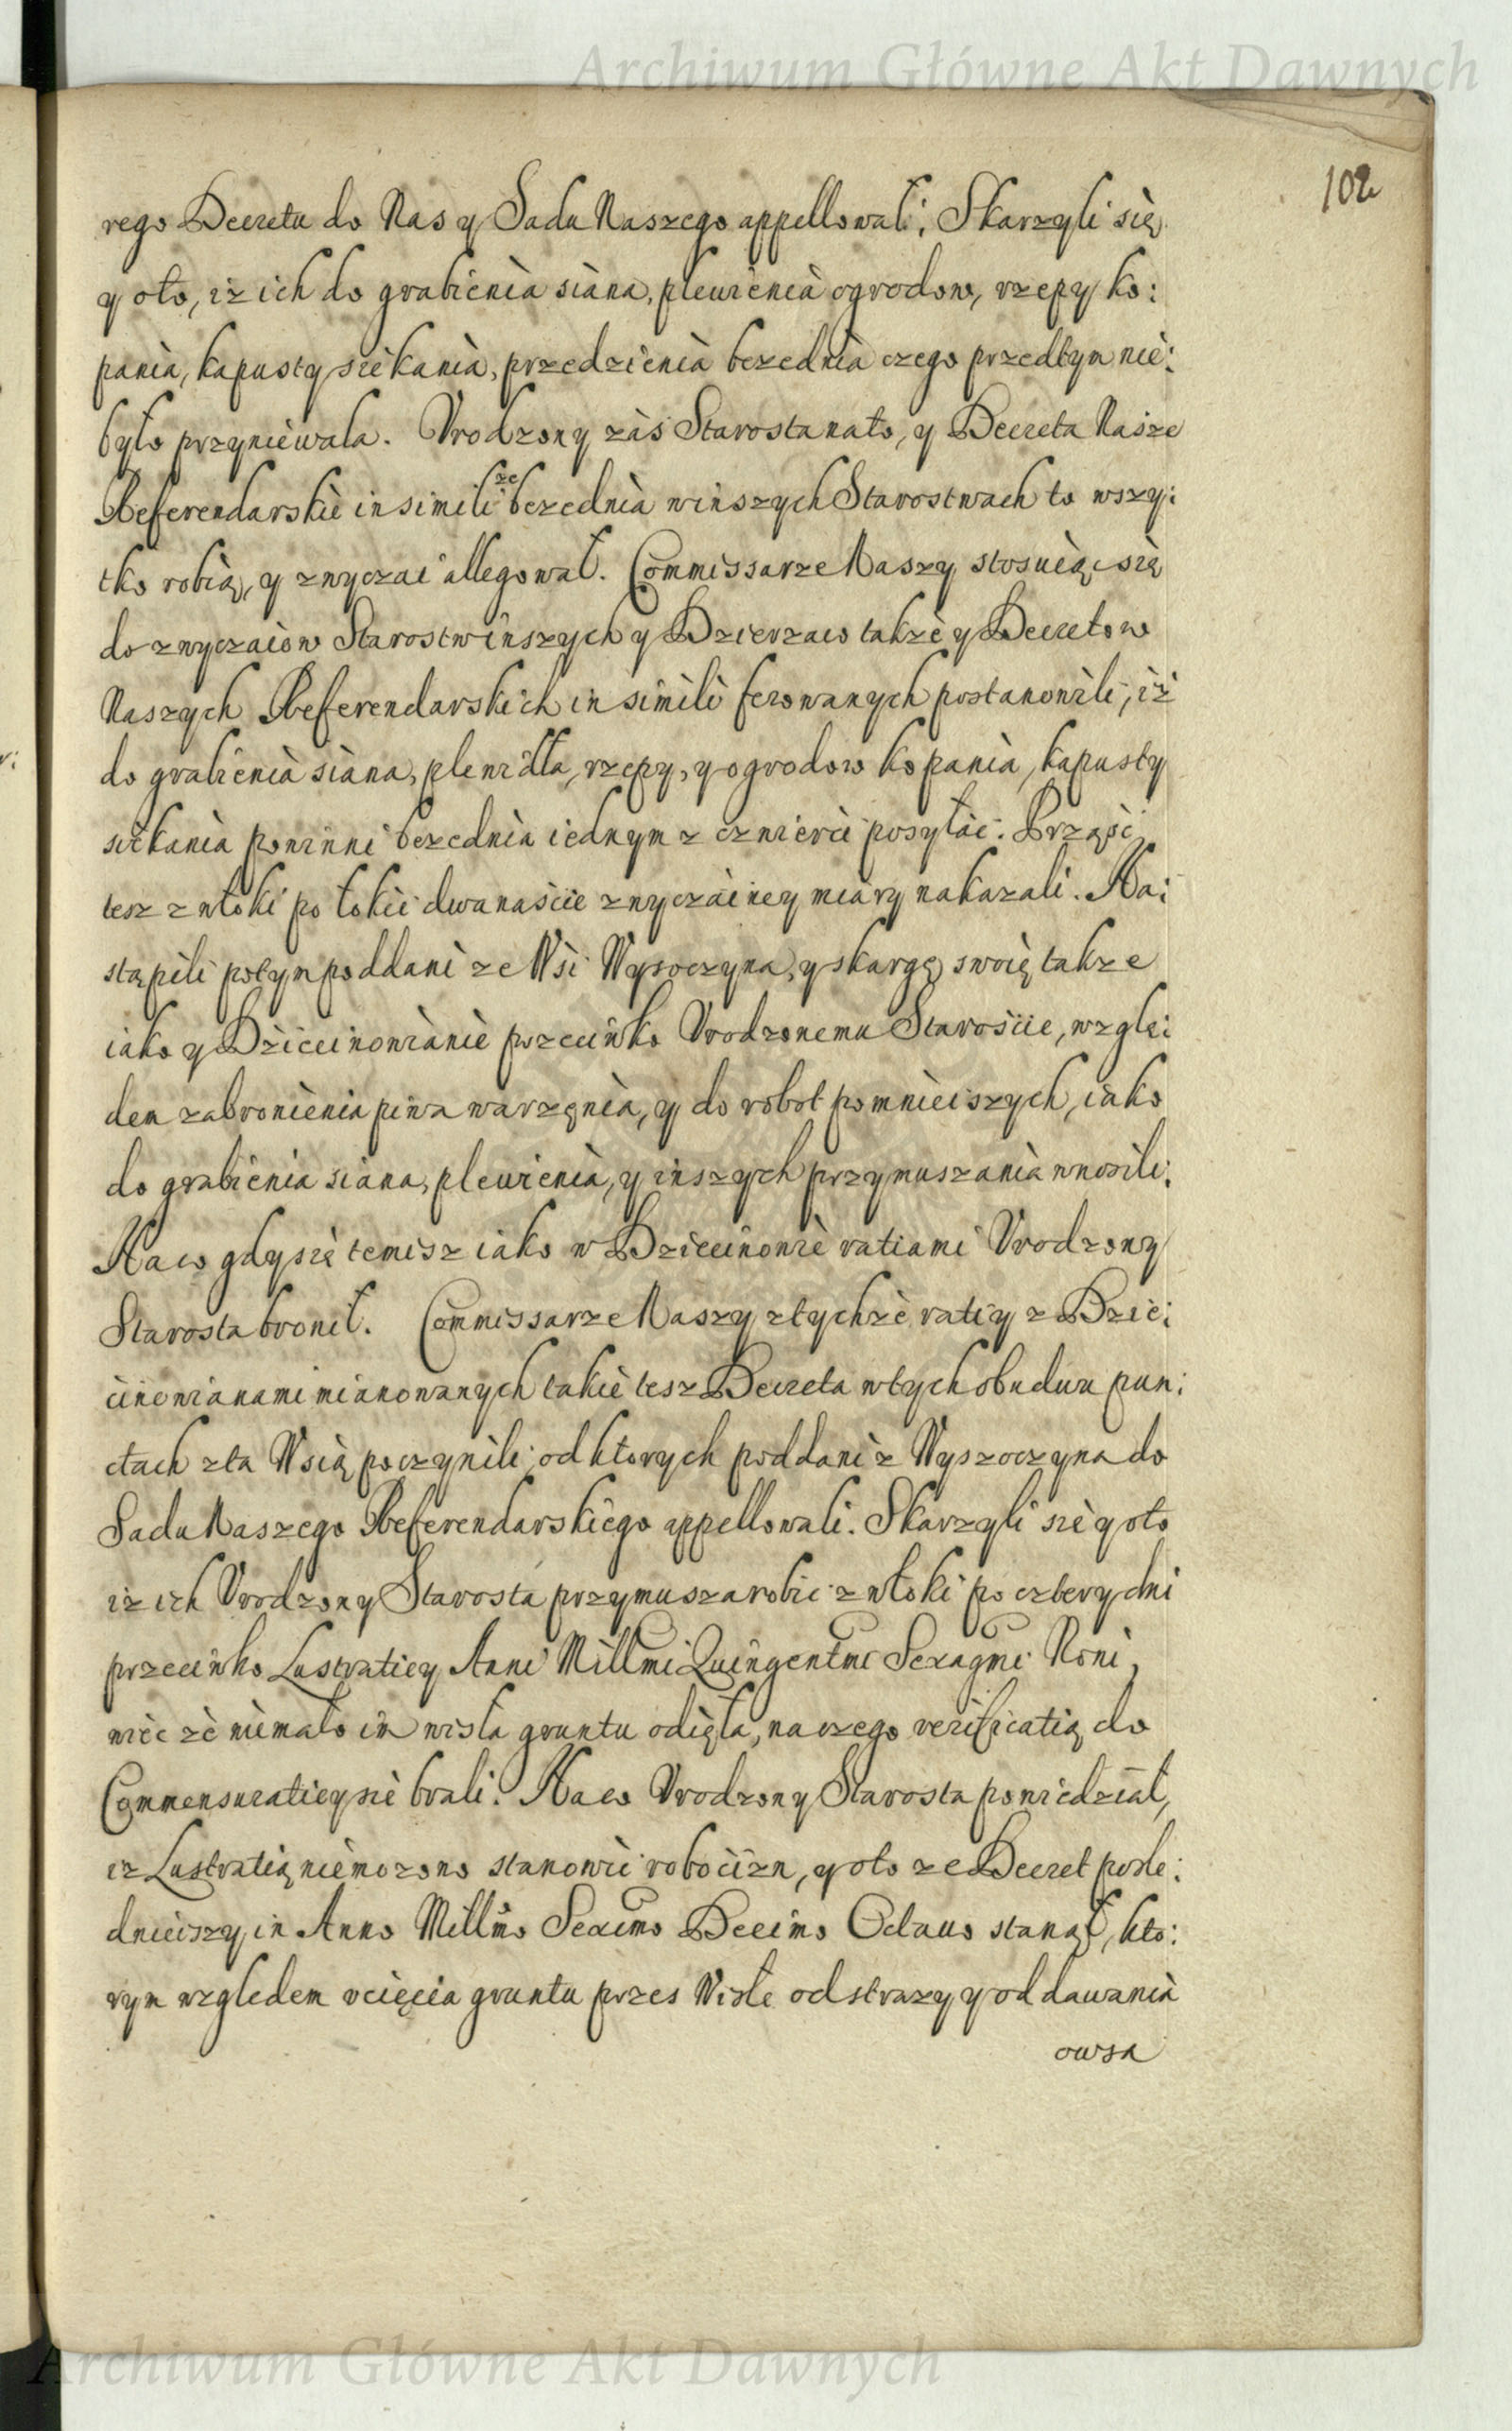 Archiwum Główne Akt Dawnych
102
rego Decretu do Nas y Sadu Naszego appellowali; Skarzyli się
y oto, iż ich do grabienia siana, plewienia ogrodow, rzepy ko:
pania, kapusty siekania, przedzienia bezednia czego przedtym nie:
było przyniewala. Vrodzony zaś Starosta nato, y Decreta Nasze
Referendarskie in simili że bezednia winszych Starostwach to wszy:
tko robią, y zwyczai allegował. Commissarze Naszy stosuiąc się
do zwyczaiow Starostw inszych y Dzierzaw także y Decretow
Naszych Referendarskich in simili ferowanych postanowili, iż
do grabienia siana, plewidła, rzepy, y ogrodow kopania, kapusty
siekania powinni bezednia iednym z czwierci posyłac. Prząść
tesz z włoki po łokci dwanaście zwyczainey miary nakazali. Na:
stąpili potym poddani ze Wsi Wysoczyna, y skargę swoię takze
iako y Dziecinowianie przeciwko Vrodzonemu Staroście, wzglę:
dem zabronienia piwa warzęnia, y do robot pomnieiszych, iako
do grabienia siana, plewienia, y inszych przymuszania wnosili.
Na co gdy się temisz iako w Dziecinowie ratiami Vrodzony
Starosta bronił. Commissarze Naszy z tychże ratiy z Dzie:
cinowianami mianowanych takie tesz Decreta w tych obudwu pun:
ctach z ta Wsią poczynili, od ktorych poddani z Wyszoczyna do
Sadu Naszego Referendarskiego appellowali. Skarzyli sie y oto
iz ich Vrodzony Starosta przymusza robic z włoki po cztery dni
przeciwko Lustratiey Anni Millmi Quingentmi Sexagmi Noni,
wiec że niemało im wisła gruntu odięła, na czego verificatią do
Commensuratiey sie brali. Na co Vrodzony Starosta powiedział,
iz Lustratią niemozono stanowic robocizn, y oto ze Decret posle:
dnieiszy in Anno Millmo Sexcmo Decimo Octauo stanął, kto:
rym względem vcięcia gruntu przes Wisłe od strazy y oddawania
owsa
Archiwum Główne Akt Dawnych